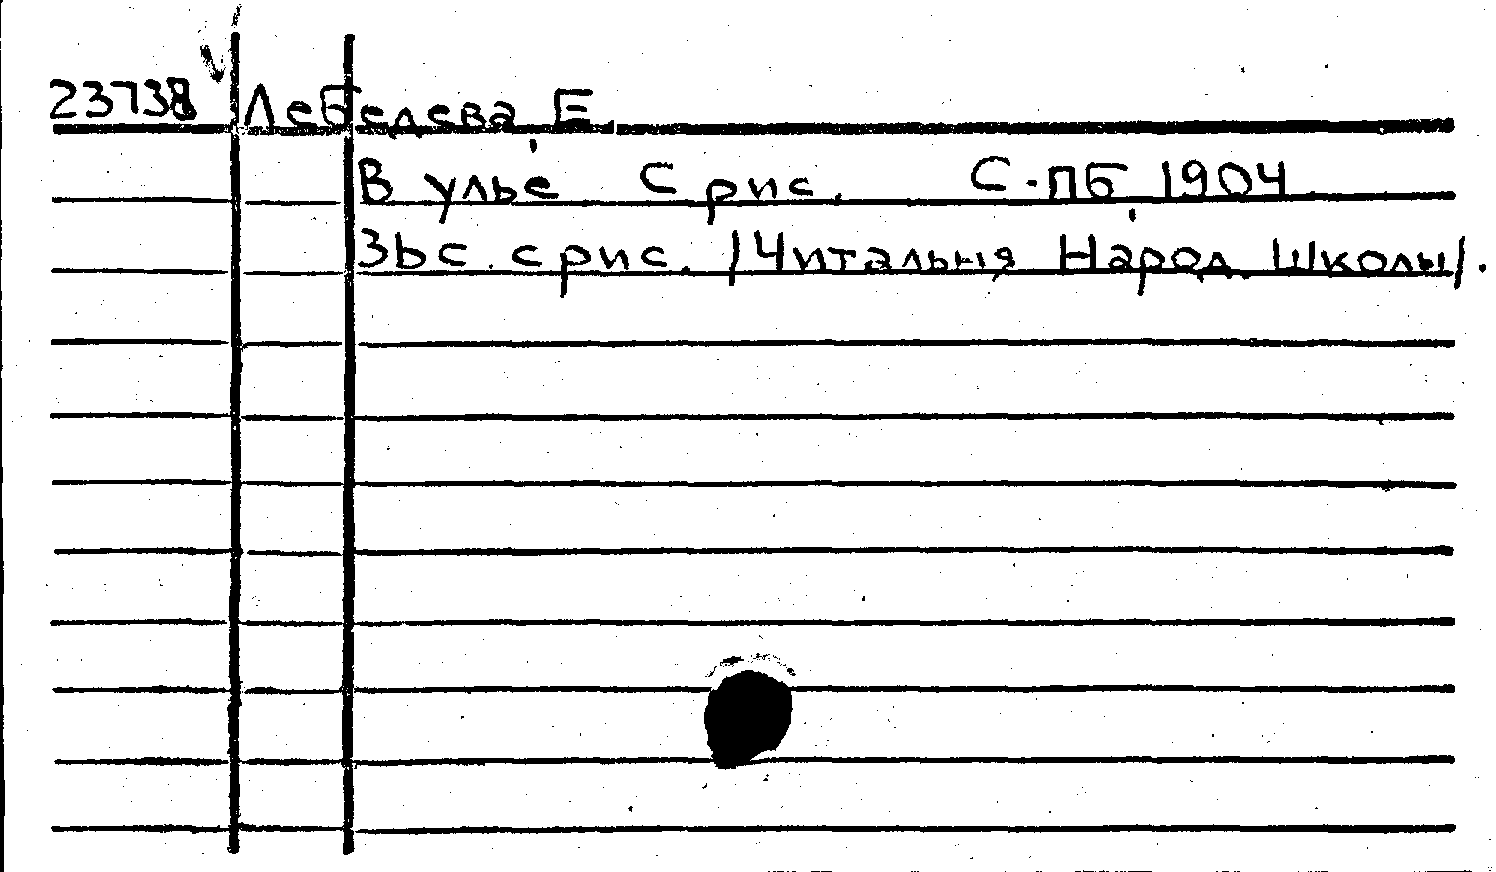 23738 Лебедева, Е.
В улье С рис. С-ПБ 1904
36с. с рис. /Читальня Народ. Школы/.